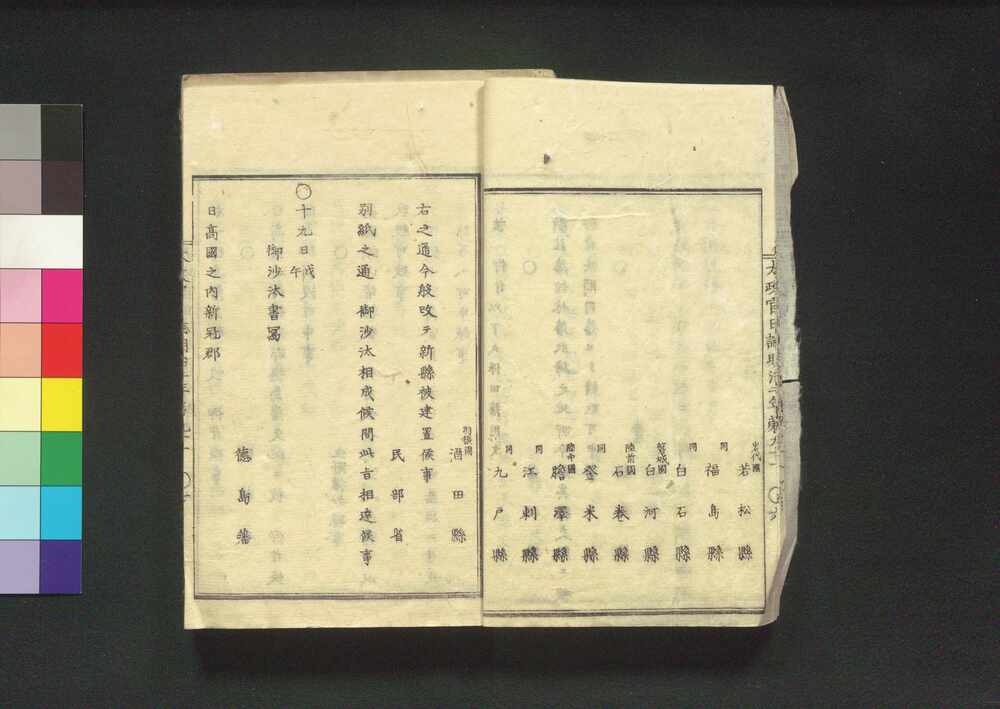 太政官日誌明治二年第九十一
岩代國 若松縣
同 福島縣
同 白石縣
磐城國 白河縣
陸前國 石巻縣
同 登米縣
陸中國 膽澤縣
同 江刺縣
同 九戸縣
羽後國 酒田縣
右之通今般改テ新縣被建置候事
民部省
別紙之通 御沙汰相成候間此旨相達候事
〇十九日戊午
御沙汰書寫
日高國之内新冠郡
徳島藩